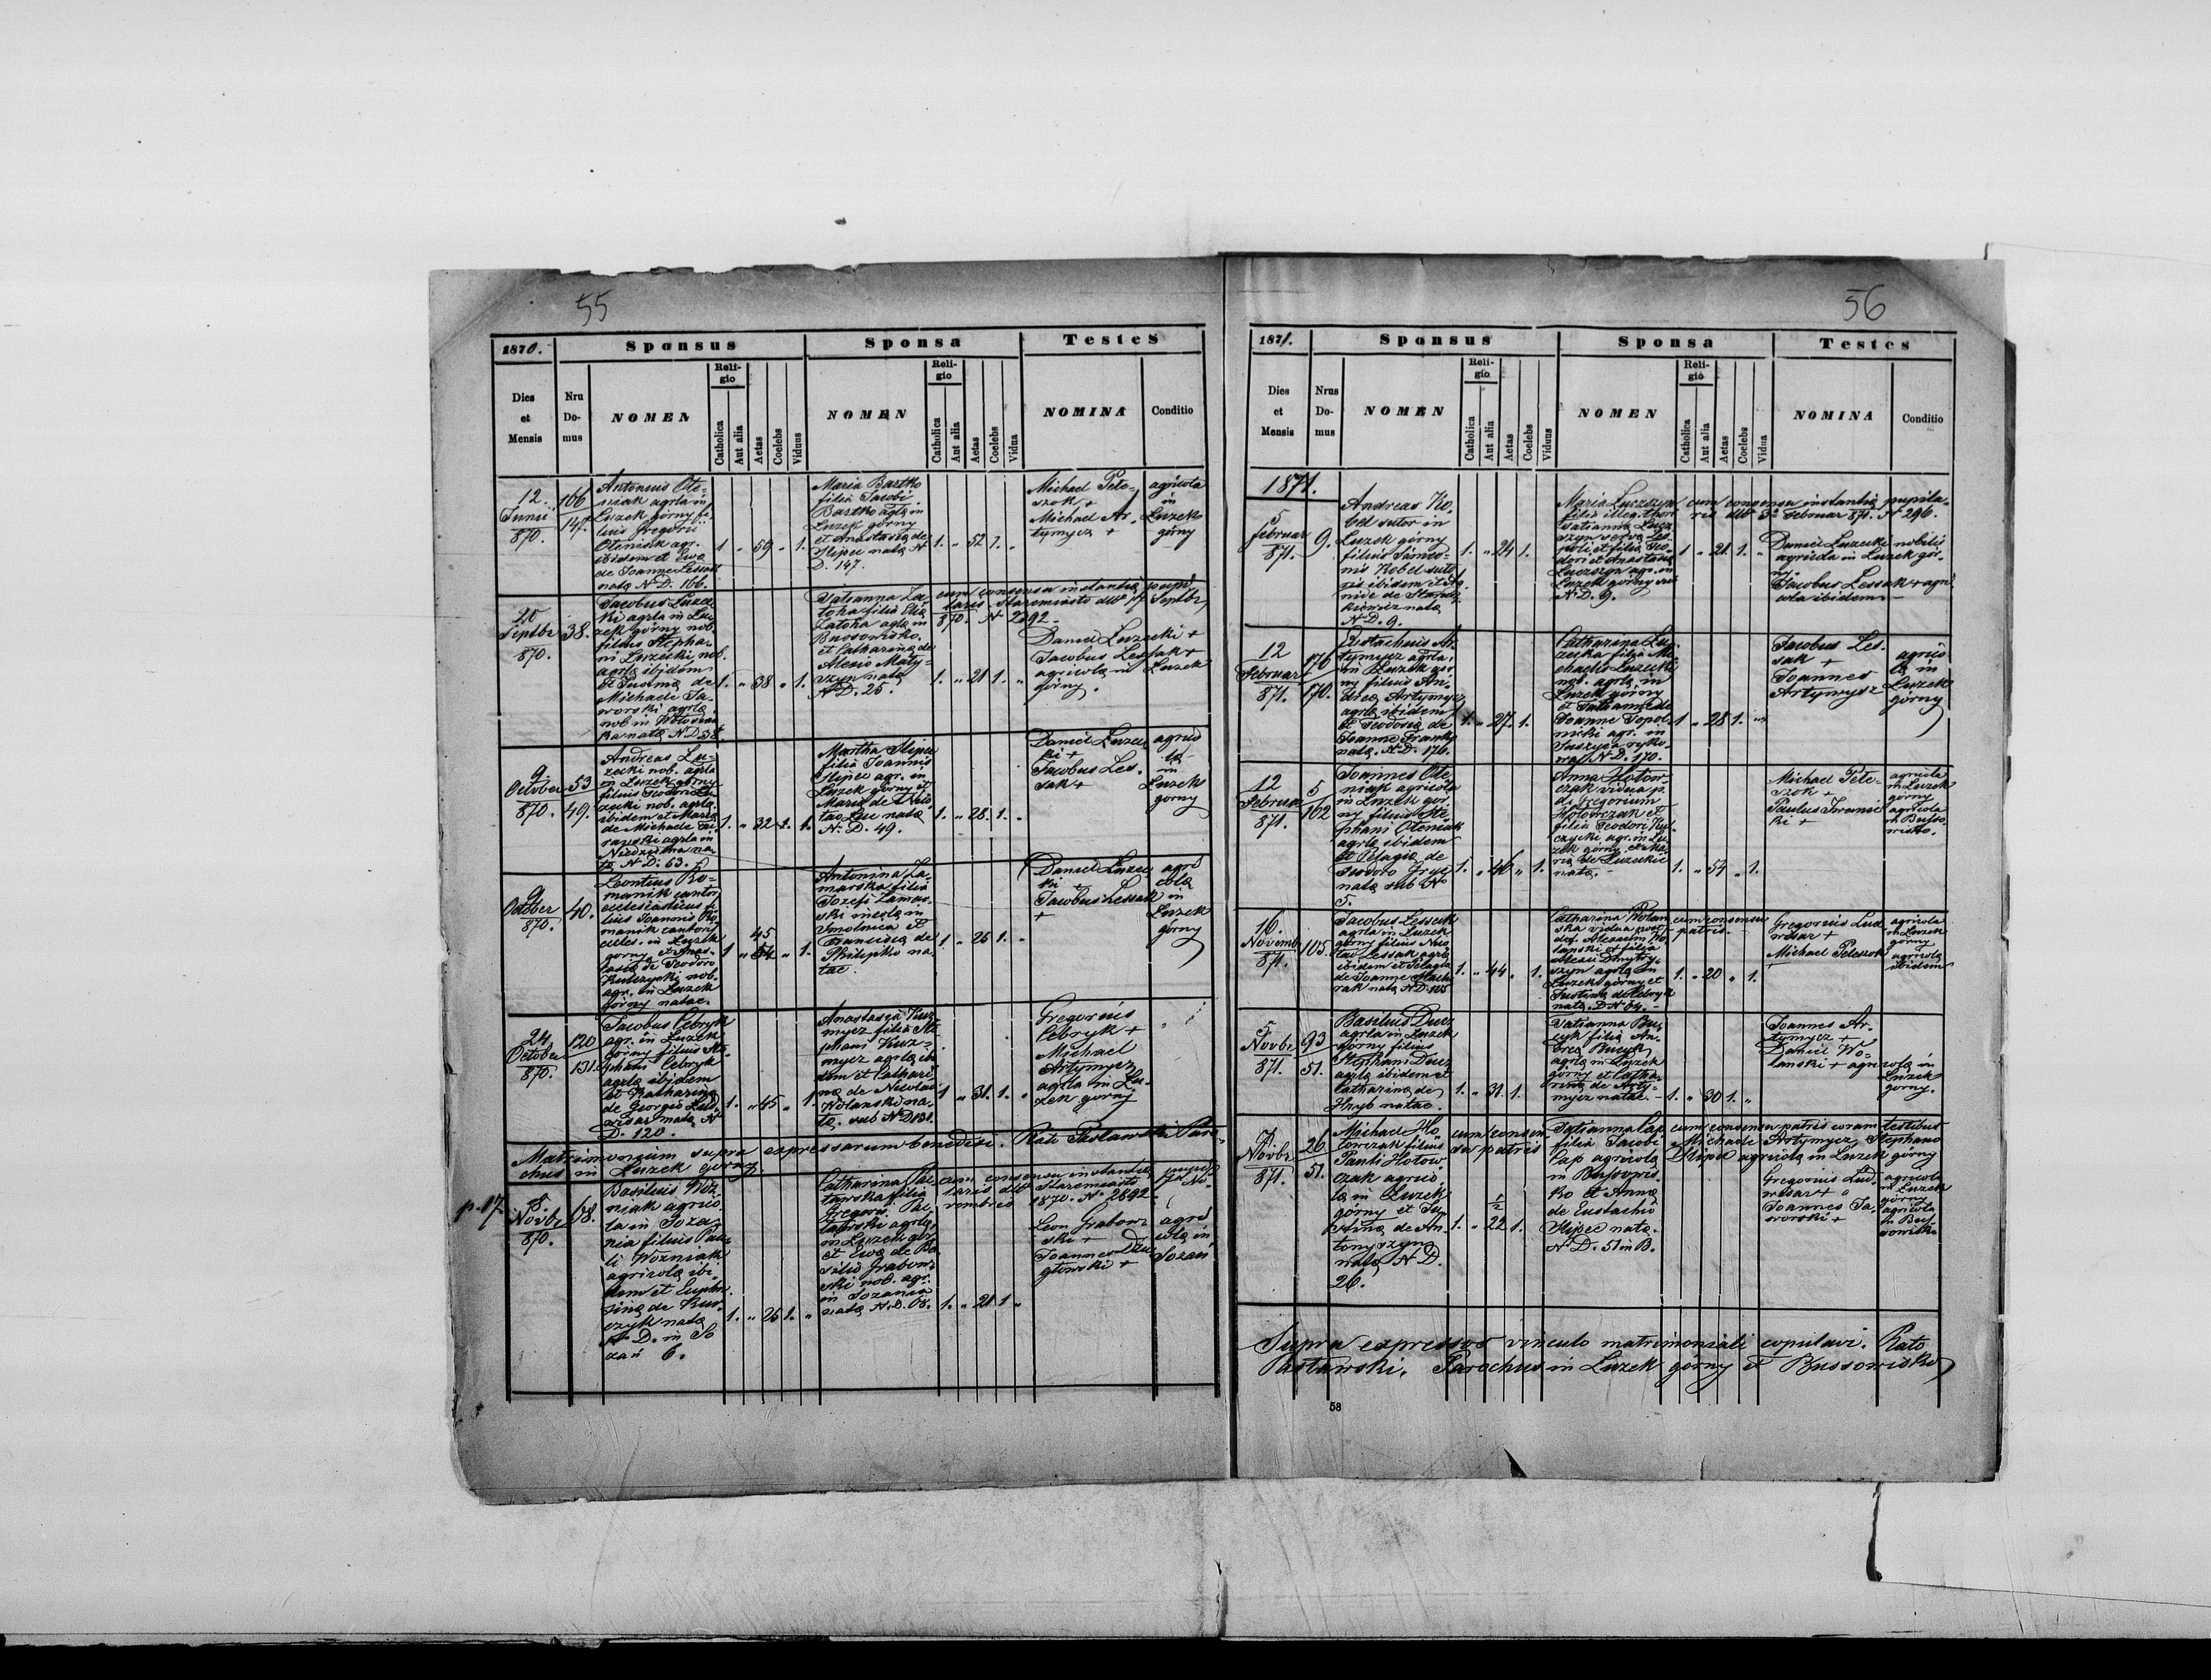 55
1870.
Sponsus
Sponsa
Testes
Dies et Mensis
Nru Domus
NOMEN
Religio
Catholica
Aut alia
Aetas
Coelebs
Viduus
NOMEN
Religio
Catholica
Aut alia
Aetas
Coelebs
Vidua
NOMINA
Conditio
12.
Junii
870.
166
147.
Antonius Ole-
niak agrla in
Luzek górny fi-
lius Gregorii
Oleniak agr.
ibidem et Eva
de Joanne Lessak
nata N D. 166.
1 „ 59 „ 1.
Maria Bartko
filia Jacobi
Bartko agla in
Luzek górny
et Anastasia de
Slipec nata N
D. 147.
1. „ 52 1. „
Michael Pele-
szok +
Michael Ar-
tymycz +
agricola
in
Luzek
górny
Septbr
870.
38.
Jacobus Luzec-
ki agrla in Lu-
zek górny nob.
filius Stepha-
ni Luzecki nob.
agrla ibidem
et Joanna de
Michaele Ja-
worski agrla
nob in
nata N D 38.
1. „ 38 „ 1.
Tatianna La-
toka filia Elia
Latoka agla in
Bussowisko
et Catharina de
Alexio Maty-
szyn nata
N D. 25.
cum consensu instantia pupil-
laris Staremiasto dtto 17 Septbr
870. N 2292.
1. „ 21 1. „
Daniel Luzecki +
Jacobus Lessak +
agricola in Luzek
górny.
9.
October
870.
53
49.
Andreas Lu-
zecki nob. agrla
in Luzek górny
filius Teodori Lu-
zecki nob. agrla
ibidem et Maria
de Michaele
agrla in
Niedzielna na-
ta N D. 53.
1. „ 32 1. 1.
Martha Slipec
filia Joannis
Slipec agr. in
Luzek górny et
Maria de Nico-
lao Lau nata
N. D. 49.
1. „ 28. 1. „
Daniel Luzec-
ki +
Jacobus Les-
sak +
agrico
la
in
Luzek
górny
9
October
870.
40.
Leontius Ro-
manik cantor
ecclesiasticus fi-
lius Joannis Ro-
manik cantoris
eccles. in Luzek
górny et Anas-
tasia de Teodoro
Kulczycki nob.
agr. in Luzek
górny natae.
45
1 „ 54 „ 1.
Antonina Za-
marska filia
Jozefi Zamar-
ski incola in
Smolnica et
Francisca de
Philipko na-
tae.
1. „ 26 1. „
Daniel Luzec
ki +
Jacobus Lessak
+
agri
cola
in
Luzek
górny
24
October
870.
120
131.
Jacobus Cebryk
agr. in Luzek
górny filius Ste-
phani Cebryk
agrla ibidem
et Katharina
de Georgio Lud-
wisar nata N
D. 120.
1. „ 45 „ 1.
Anastasia Kuz-
mycz filia Ste-
phani Kuz-
mycz agrla ibi-
dem et Cathari-
na de Nicolao
Wolanski na-
ta sub N D 131.
1 „ 31. 1. „
Gregorius
Cebryk +
Michael
Artymycz
agrla in Lu-
zek górny
Matrimonium supra expressarum benedixi. Rato Paslawski Paro-
chus in Luzek górny.
p. 17.
8.
Novbr
870.
68.
Basilius Woz-
niak agrico-
la in Soza-
nia filius Pau-
li Wozniak
agricola ibi-
dem et Euphro-
sina de Kur-
czyk nata
N D. in So
zań 6.
1. „ 26 1. „
Catharina
filia
Gregorii
agrla
in Luzek gór.
et Eva de Ba-
silio Grabow-
ski nob. agr.
in Sozania
nata N. D. 68.
cum consensu instantia pupil-
laris dtto Staremiasto 17 No-
vembris 1870. N. 2892.
1. „ 21 1 „
Leon Grabow-
ski +
Joannes
+
agri
cola in
Sozań
56
1871.
Sponsus
Sponsa
Testes
Dies et Mensis
Nrus Domus
NOMEN
Religio
Catholica
Aut alia
Aetas
Coelebs
Viduus
NOMEN
Religio
Catholica
Aut alia
Aetas
Coelebs
Vidua
NOMINA
Conditio
1871.
5
Februar
871.
9.
Andreas Ko-
bel sutor in
Luzek górny
filius Simeo-
nis Kobel suto-
ris ibidem et Ag-
nide de
nata
N D. 9.
1. „ 24 1.
Maria Luczszyn
filia illeg. thori
Tatianna Lucz-
szyn
et filia Teo-
dori et Anastasia
Luczszyn agr. in
Luzek górny
N D. 9.
cum consensu instantia pupila-
ris dtto 3. Februar 871. N 296.
1 „ 21. 1. „
Daniel Luzecki nobilis
agricola in Luzek gór-
ny.
Jacobus Lessak + agri
cola ibidem
12
Februar
871.
176
170.
Eustachius Ar-
tymycz agrla
in Luzek gór-
ny filius An-
drea Artymycz
agrla ibidem
et Teodosia de
Joanne Franko
nata. N D. 176.
1. „ 27. 1.
Catharina Lu-
zecka filia Mi-
chaelis Luzecki
nob. agrla in
Luzek górny
et Tatianna de
Joanne Topol-
nicki agr. in
Suszyca ryko-
wa N D. 170.
1 „ 28 1. „
Jacobus Les-
sak +
Joannes
Artymycz
agrico
la in
Luzek
górny
12
Februar
871.
5
102
Joannes Ole-
niak agricola
in Luzek gór-
ny filius Ste-
phani Oleniak
agrla ibidem
et Pelagia de
Teodoro
nata sub N
5.
1. „ 46 „ 1.
Anna Hotow-
czak vidua p.
d. Gregorium
Hotowczak et
filia Teodori Kul-
czycki agr. in Lu-
zek górny et Ma-
ria de Luzeckie
nata.
1. „ 54 „ 1.
Michael Pele-
szok +
Paulus Iwanic
ki +
agricola
in Luzek
górny
agricola
in Busso-
wisko.
16.
Novemb
871.
105.
Jacobus Lessak
agrla in Luzek
górny filius Nico-
lai Lessak agrla
ibidem et Pelagia
de Joanne
nata N D. 105
1. „ 44 „ 1.
Catharina Wolan-
ska vidua post
def. Alexium Wo-
lanski et filia
Alexii Dmytry-
szyn agrla in
Luzek górny et
Justina de Cebryk
nata. D N. 64.
cum consensu
patris.
1. „ 20 „ 1.
Gregorius Lud-
wisar +
Michael Peleszok
+
agricola
in Luzek
górny
agricola
ibidem
5
Novbr
871.
93
51.
Basilius Ducz
agrla in Luzek
górny filius
Stephani Ducz
agrla ibidem et
Catharina de
Hryb natae.
1. „ 31. 1.
Tatianna Bu-
zyk filia An-
drea Buzyk
agrla in Luzek
górny et Catha-
rina de Arty-
mycz natae.
1. „ 30 1. „
Joannes Ar-
tymycz +
Daniel Wo-
lanski + agricola in
Luzek
górny.
7
Novbr
871.
26
51.
Michael Ho-
towczak filius
Pauli Hotow-
czak agrico-
la in Luzek
górny et Ju-
stina de An-
tonyszyn
nata N D.
26.
cum consen-
su patris
1/2
1. „ 22 1.
Tatianna Cap
filia Jacobi
Cap agricola
in Bussowis-
ko et Anna
de Eustachio
Slipec nata.
N D. 51 in B.
cum consensu patris coram testibus
Michaele Artymycz, Stephano
Slipec agricola in Luzek górny
Gregorius Lud-
wisar +
Joannes Ja-
worski +
agricola
in Luzek
górny
agricola
in Bus-
sowisko
Supra expressos vinculo matrimoniali copulavi. Rato
Paslawski. Parochus in Luzek górny et Bussowisko
58